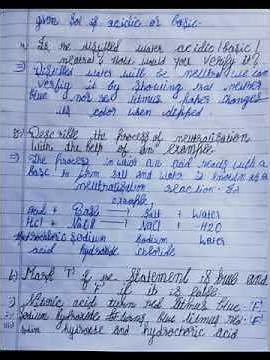 given Sol is acidic or basic.
Is the distilled water acidic/basic/
neutral? How would you verify it?
⇒ Distilled water will be neutral we can
verify it by showing that neither
blue nor red litmus paper changes
its color when dipped.
Describe the process of neutralization
with the help of an example.
⇒ The process in which an acid reacts with a
base to form salt and water is known as a
neutralization reaction. For
example,
Acid + Base → Salt + Water
HCl + NaOH → NaCl + H2O
Hydrochloric sodium sodium water
acid hydroxide chloride
Mark 'T' if the statement is true and
'F' if it is false.
i) Nitric acid turn red litmus blue 'F'
Sodium hydroxide turns blue litmus red. 'F'
sodium hydroxide and hydrochloric acid